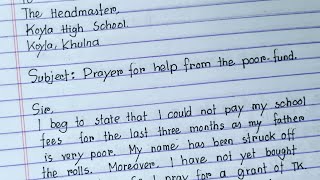 To
The Headmaster,
Koyla High School.
Koyla, Khulna
Subject: Prayer for help from the poor fund.
Sir,
I beg to state that I could not pay my school
fees for the last three months as my father
is very poor. My name has been struck off
the rolls. Moreover, I have not yet bought
I pray for a grant of TK.